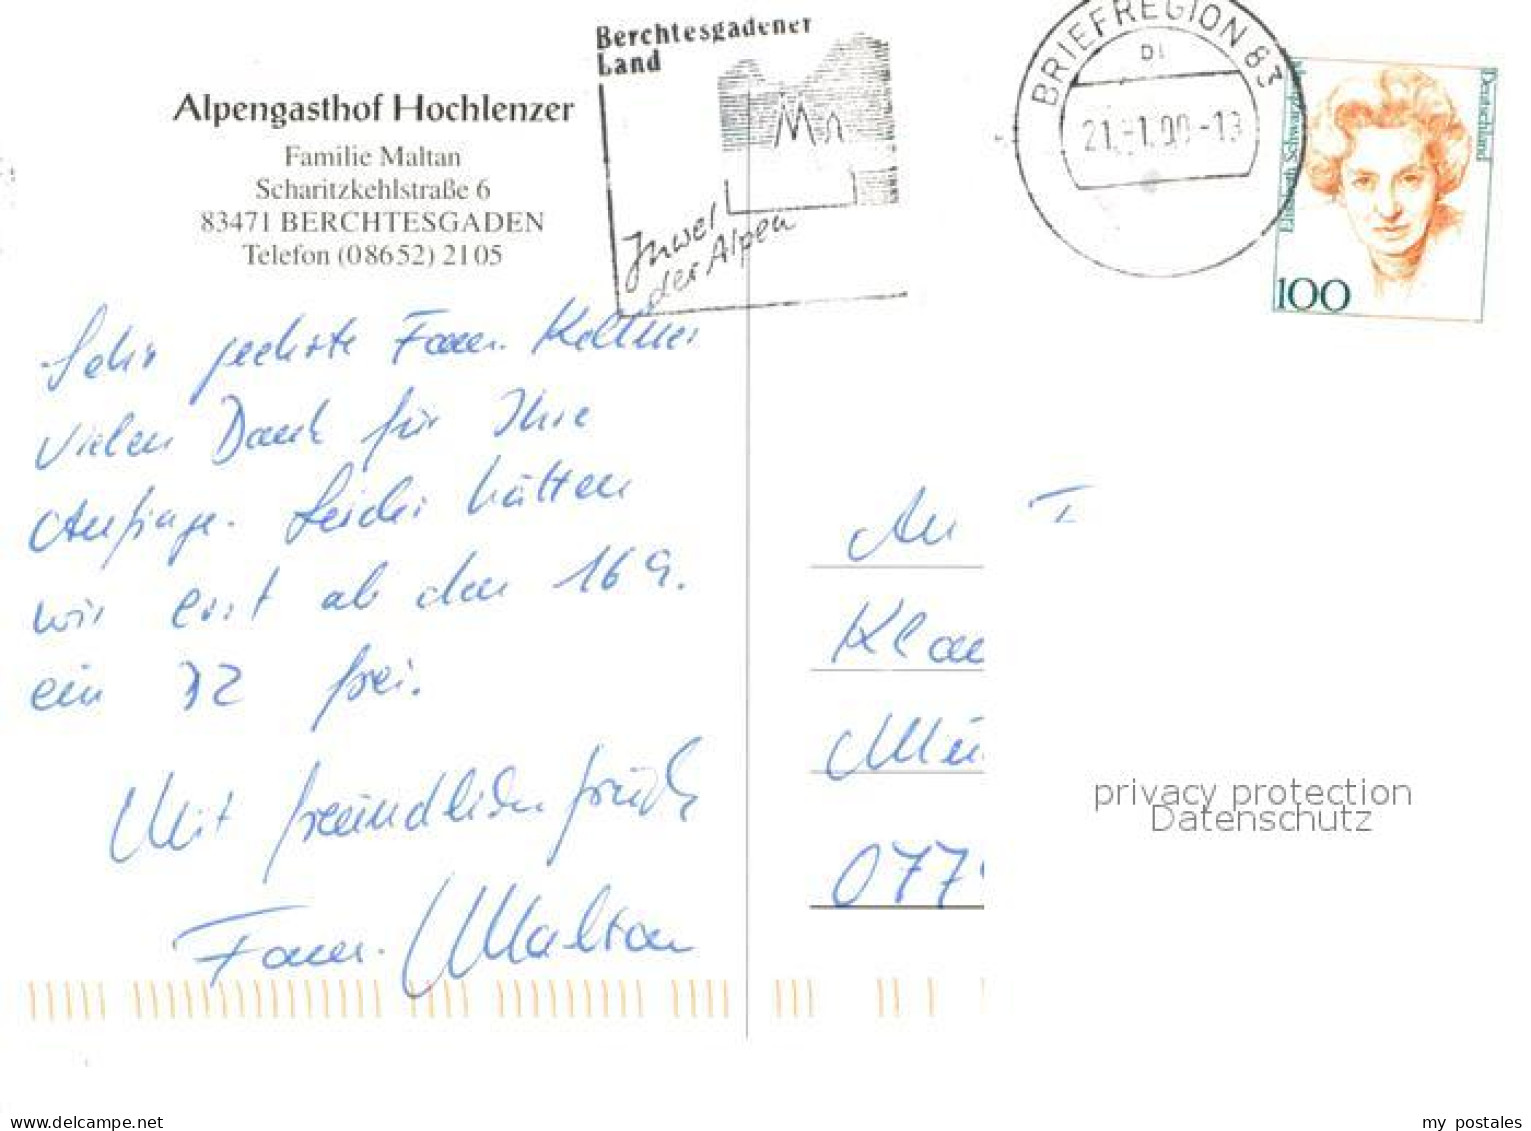 Berchtesgadener
Land
Juwel
der Alpen
BRIEFREGION 83
21.-1.00-13
Deutschland
Elisabeth Schwarzhaupt
100
Alpengasthof Hochlenzer
Familie Maltan
Scharitzkehlstraße 6
83471 BERCHTESGADEN
Telefon (08652) 2105
Sehr geehrte Fam.
vielen Dank für Ihre
Anfrage. Leider hätten
wir erst ab den 16 9.
ein frei.
Mit freundlichen Grüßen
Fam. Maltan
An
Klau
Mü
077
privacy protection
Datenschutz
www.delcampe.net
my_postales